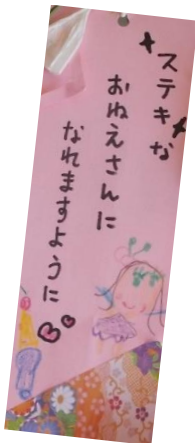 ステキな
おねえさんに
なれますように